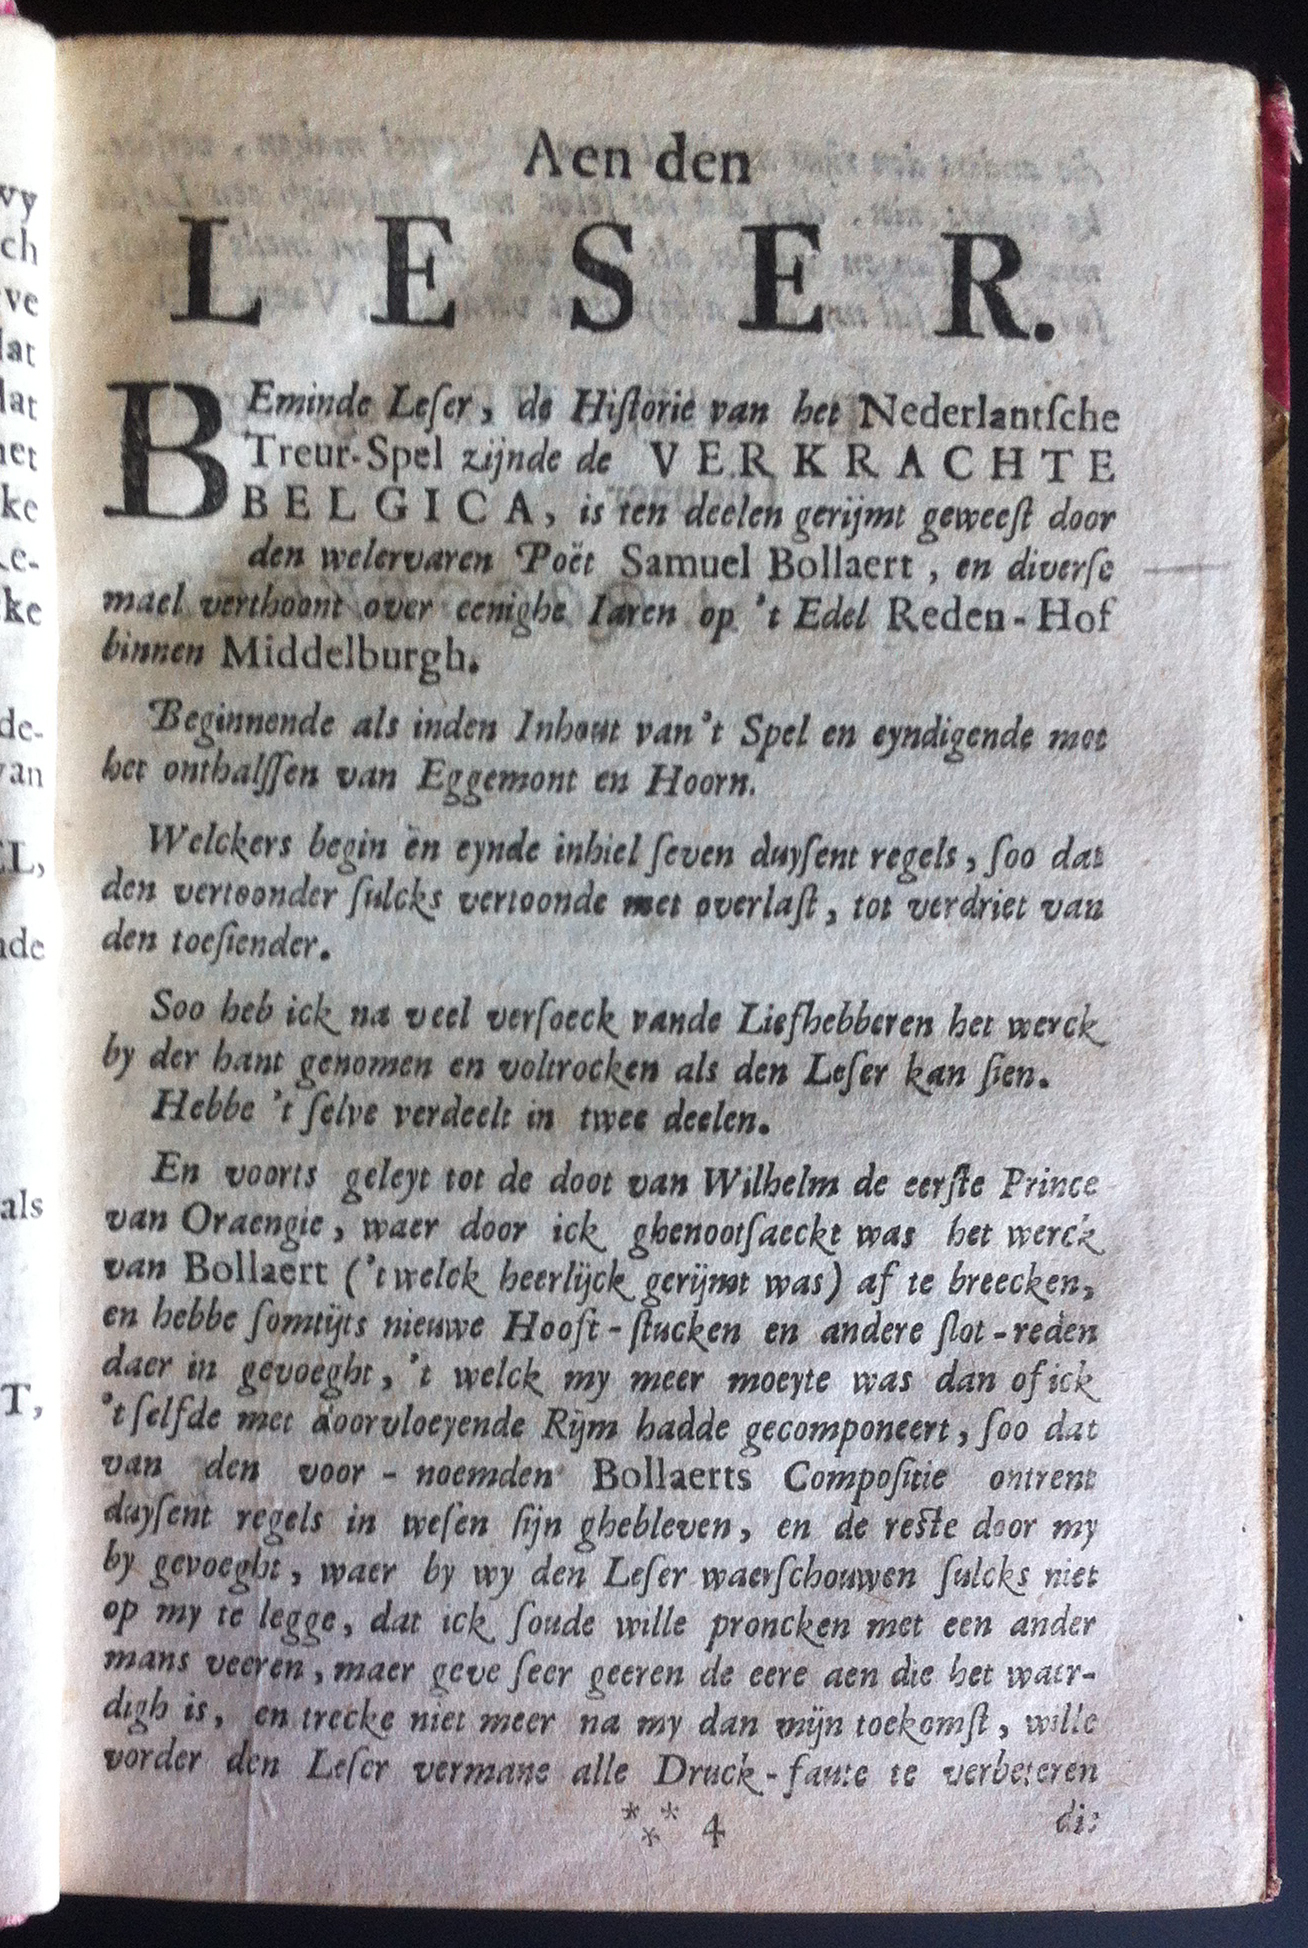 Aen den
LESER.
BEminde Leſer, de Hiſtorie van het Nederlantſche
Treur-Spel zijnde de VERKRACHTE
BELGICA, is ten deelen gerijmt geweeſt door
den welervaren Poët Samuel Bollaert, en diverſe
mael verthoont over eenighe Iaren op 't Edel Reden-Hof
binnen Middelburgh.
Beginnende als inden Inhout van't Spel en eyndigende met
het onthalſſen van Eggemont en Hoorn.
Welckers begin en eynde inhiel ſeven duyſent regels, ſoo dat
den vertoonder ſulcks vertoonde met overlaſt, tot verdriet van
den toeſiender.
Soo heb ick na veel verſoeck vande Liefhebberen het werck
by der hant genomen en voltrocken als den Leſer kan ſien.
Hebbe 't ſelve verdeelt in twee deelen.
En voorts geleyt tot de doot van Wilhelm de eerſte Prince
van Oraengie, waer door ick ghenootſaeckt was het werck
van Bollaert ('t welck heerlijck gerijmt was) af te breecken,
en hebbe ſomtijts nieuwe Hooft-ſtucken en andere ſlot-reden
daer in gevoeght, 't welck my meer moeyte was dan of ick
't ſelfde met doorvloeyende Rijm hadde gecomponeert, ſoo dat
van den voor-noemden Bollaerts Compoſitie ontrent
duyſent regels in weſen ſijn ghebleven, en de reſte door my
by gevoeght, waer by wy den Leſer waerſchouwen ſulcks niet
op my te legge, dat ick ſoude wille proncken met een ander
mans veeren, maer geve ſeer geeren de eere aen die het waer-
digh is, en trecke niet meer na my dan mijn toekomſt, wille
vorder den Leſer vermane alle Druck-faute te verbeteren
*** 4 die
vy
ch
ve
dat
dat
net
ke
ke
de-
van
EL,
nde
als
T,